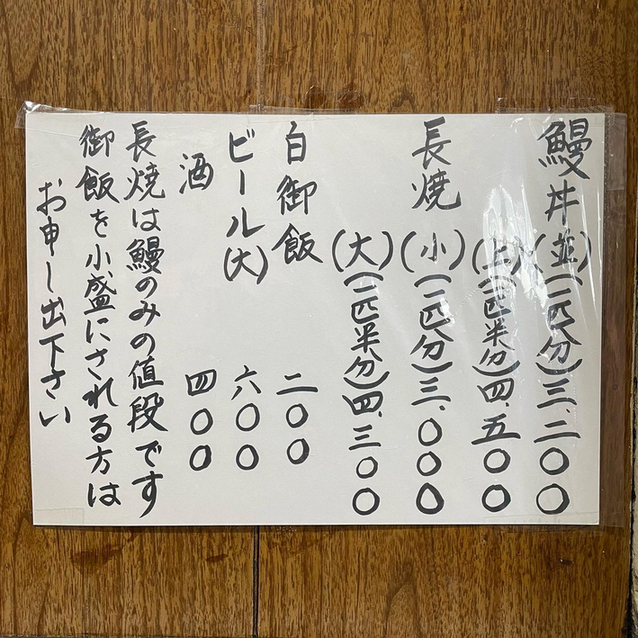 鰻丼(並)(一匹分)三、二〇〇
(上)(一匹半分)四、五〇〇
長焼(小)(一匹分)三、〇〇〇
(大)(一匹半分)四、三〇〇
白御飯 二〇〇
ビール(大) 六〇〇
酒 四〇〇
長焼は鰻のみの値段です
御飯を小盛にされる方は
お申し出下さい